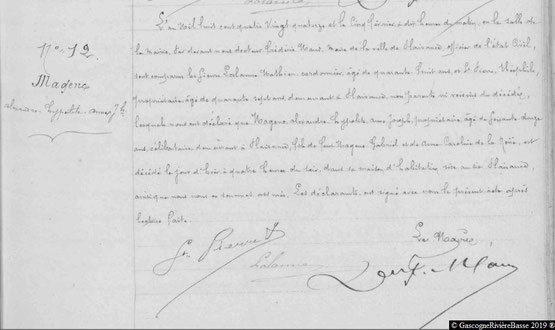 L'an Mil huit cent quatre Vingt quatorze et le Cinq Février à dix heures du matin, en la salle de
la mairie, Par devant nous docteur Frédéric Maur, Maire de la ville de Plaisance, officier de l'état Civil,
N° 12
sont comparus les sieurs Lalanne Mathieu, cordonnier, âgé de quarante huit ans, et St Pierre Théophile,
Magenc
propriétaire, âgé de quarante sept ans, domiciliés à Plaisance, non parents ni voisins du décédé,
Alexandre, Hyppolite, Joseph
lesquels nous ont déclaré que Magenc Alexandre Hyppolite Joseph, propriétaire, âgé de soixante douze
ans, célibataire, domicilié à Plaisance, fils de feu Magenc Gabriel et de Anne Caroline de la
décédé le jour d'hier à quatre heures du soir, dans sa maison d'habitation sise au dit Plaisance,
ainsi que nous nous en sommes assuré. Les déclarants ont signé avec nous le présent acte après
lecture faite.
St Pierre T
Le Maire,
Lalanne
Doct. F. Maur
© GascogneRivièreBasse 2019 ®